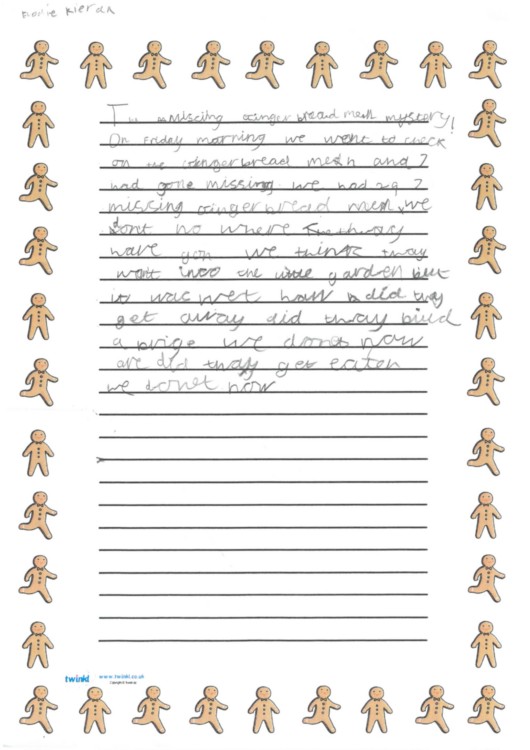 Kieran
The missing gingerbread men mystery!
On Friday morning we went to check
on the gingerbread men and 7
had gone missing we had 7
missing gingerbread men we
dont no where thay
have gon we think thay
went into the little garden but
it was wet how did thay
get away did thay biuld
a brige we donot now
are did thay get eaten
we donet now
twinkl www.twinkl.co.uk